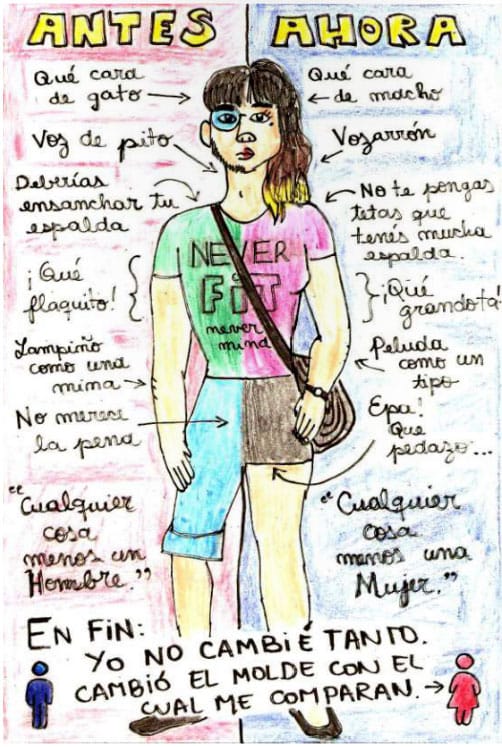 ANTES
AHORA
Qué cara
de gato
Voz de pito
Deberías
ensanchar tu
espalda
¡Qué
flaquito!
Lampiño
como una
mina
No merece
la pena
"Cualquier
cosa
menos un
Hombre."
Qué cara
de macho
Vozarrón
No te pongas
tetas que
tenés mucha
espalda.
¡Qué
grandota!
Peluda
como un
tipo
Epa!
Que
pedazo...
"Cualquier
cosa
menos una
Mujer."
NEVER
FIT
never
mind
EN FIN:
YO NO CAMBIÉ TANTO.
CAMBIÓ EL MOLDE CON EL
CUAL ME COMPARAN.